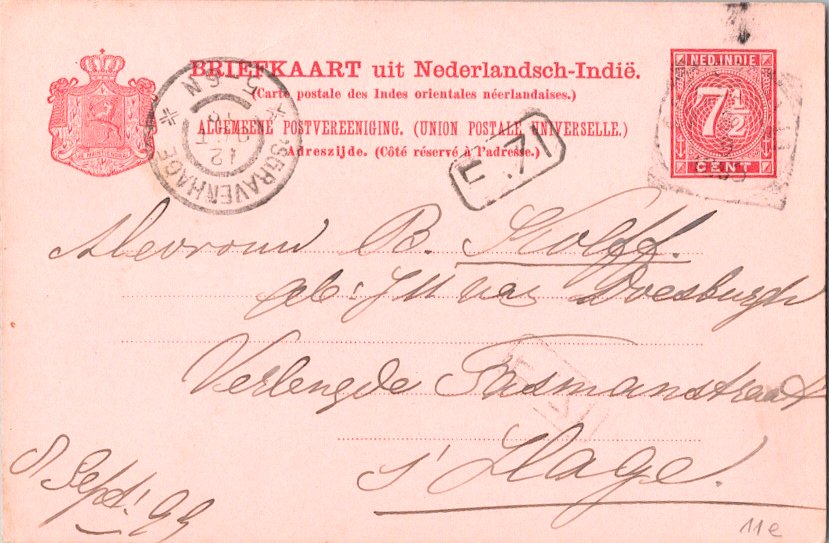 BRIEFKAART uit Nederlandsch-Indië.
(Carte postale des Indes orientales néerlandaises.)
ALGEMEENE POSTVEREENIGING. (UNION POSTALE UNIVERSELLE.)
Adreszijde. (Côté réservé à l'adresse.)
NED. INDIE
7 1/2
CENT
'SGRAVENHAGE
12
Mevrouw B. Kolff.
geb: v. Doesburgh
Verlengde Tasmanstraat
s'Hage.
8 Sept. 99
11e